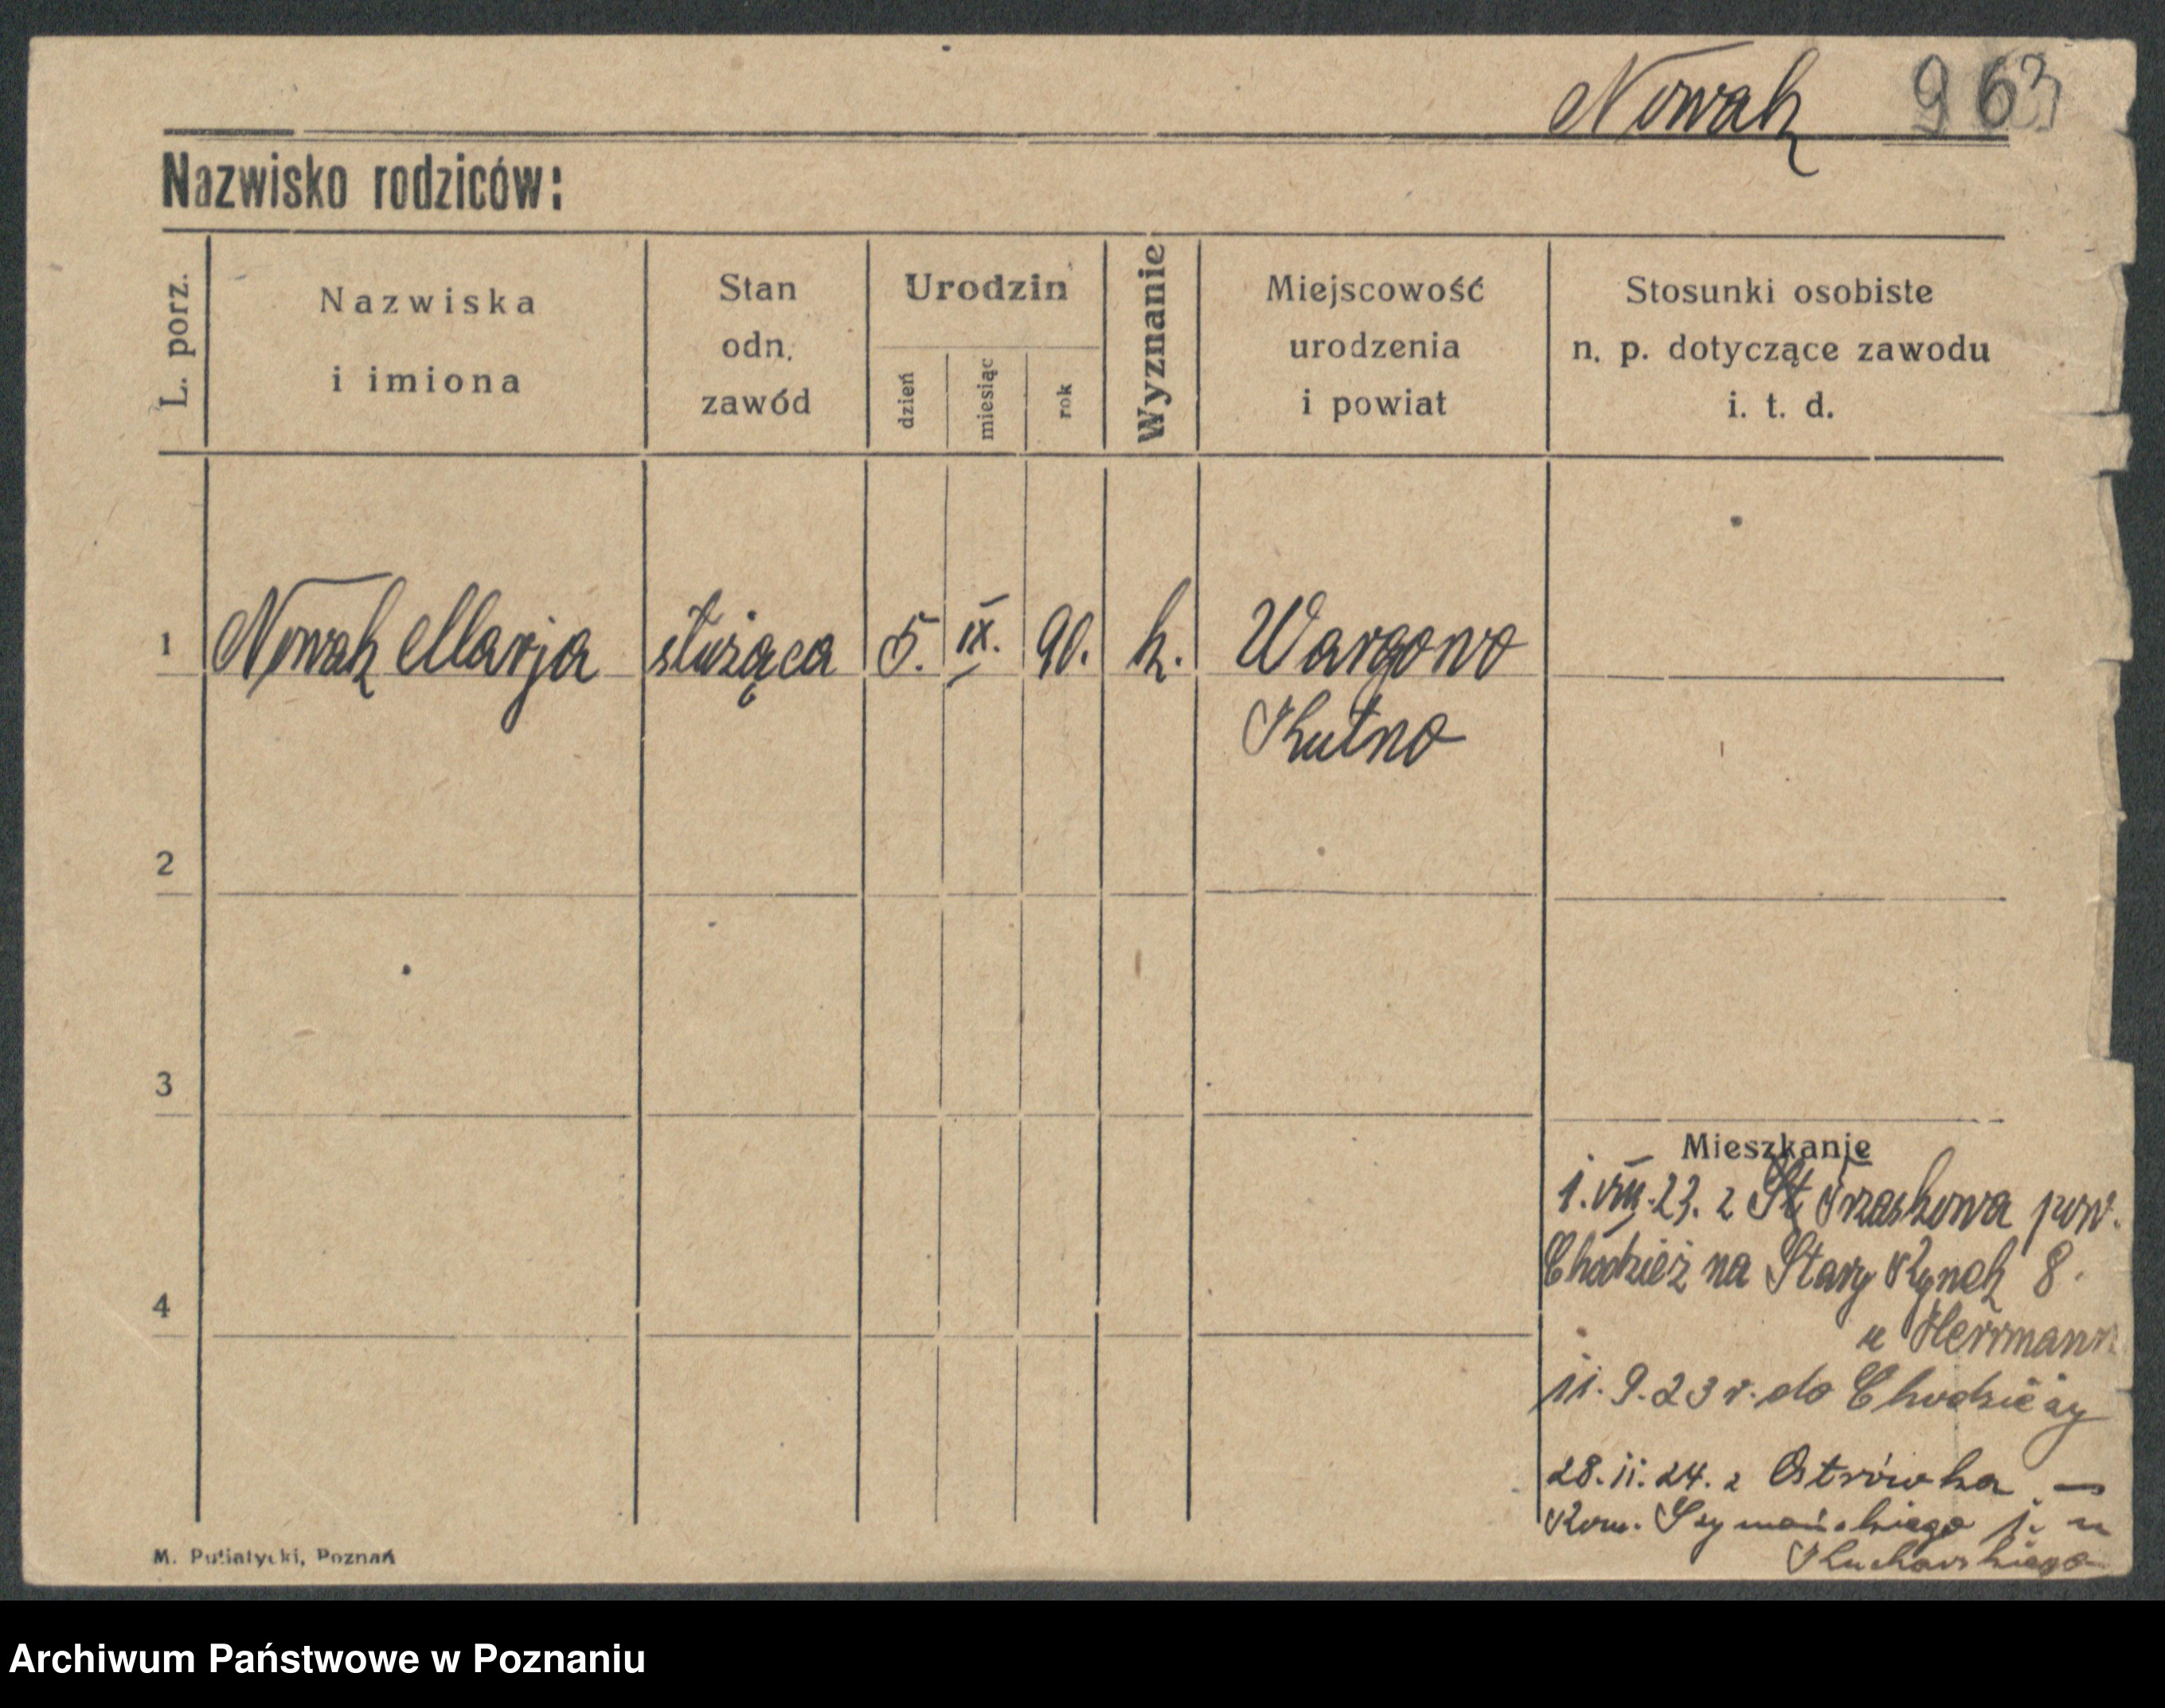 Nowak 963
Nazwisko rodziców:
L. porz.
Nazwiska
i imiona
Stan
odn.
zawód
Urodzin
dzień
miesiąc
rok
Wyznanie
Miejscowość
urodzenia
i powiat
Stosunki osobiste
n. p. dotyczące zawodu
i. t. d.
1 Nowak Marja służąca 5. IX. 90. k. Wargowo
Kutno
2
3
Mieszkanie
1. VIII. 23. z pow.
Chodzież na Stary Rynek 8.
4
u Herrmann
11. 9. 23 r. do Chodzieży
28. 11. 24. z Ostrówka —
Szymańskiego 1. u
Kucharskiego
M. Putiatycki, Poznań
Archiwum Państwowe w Poznaniu